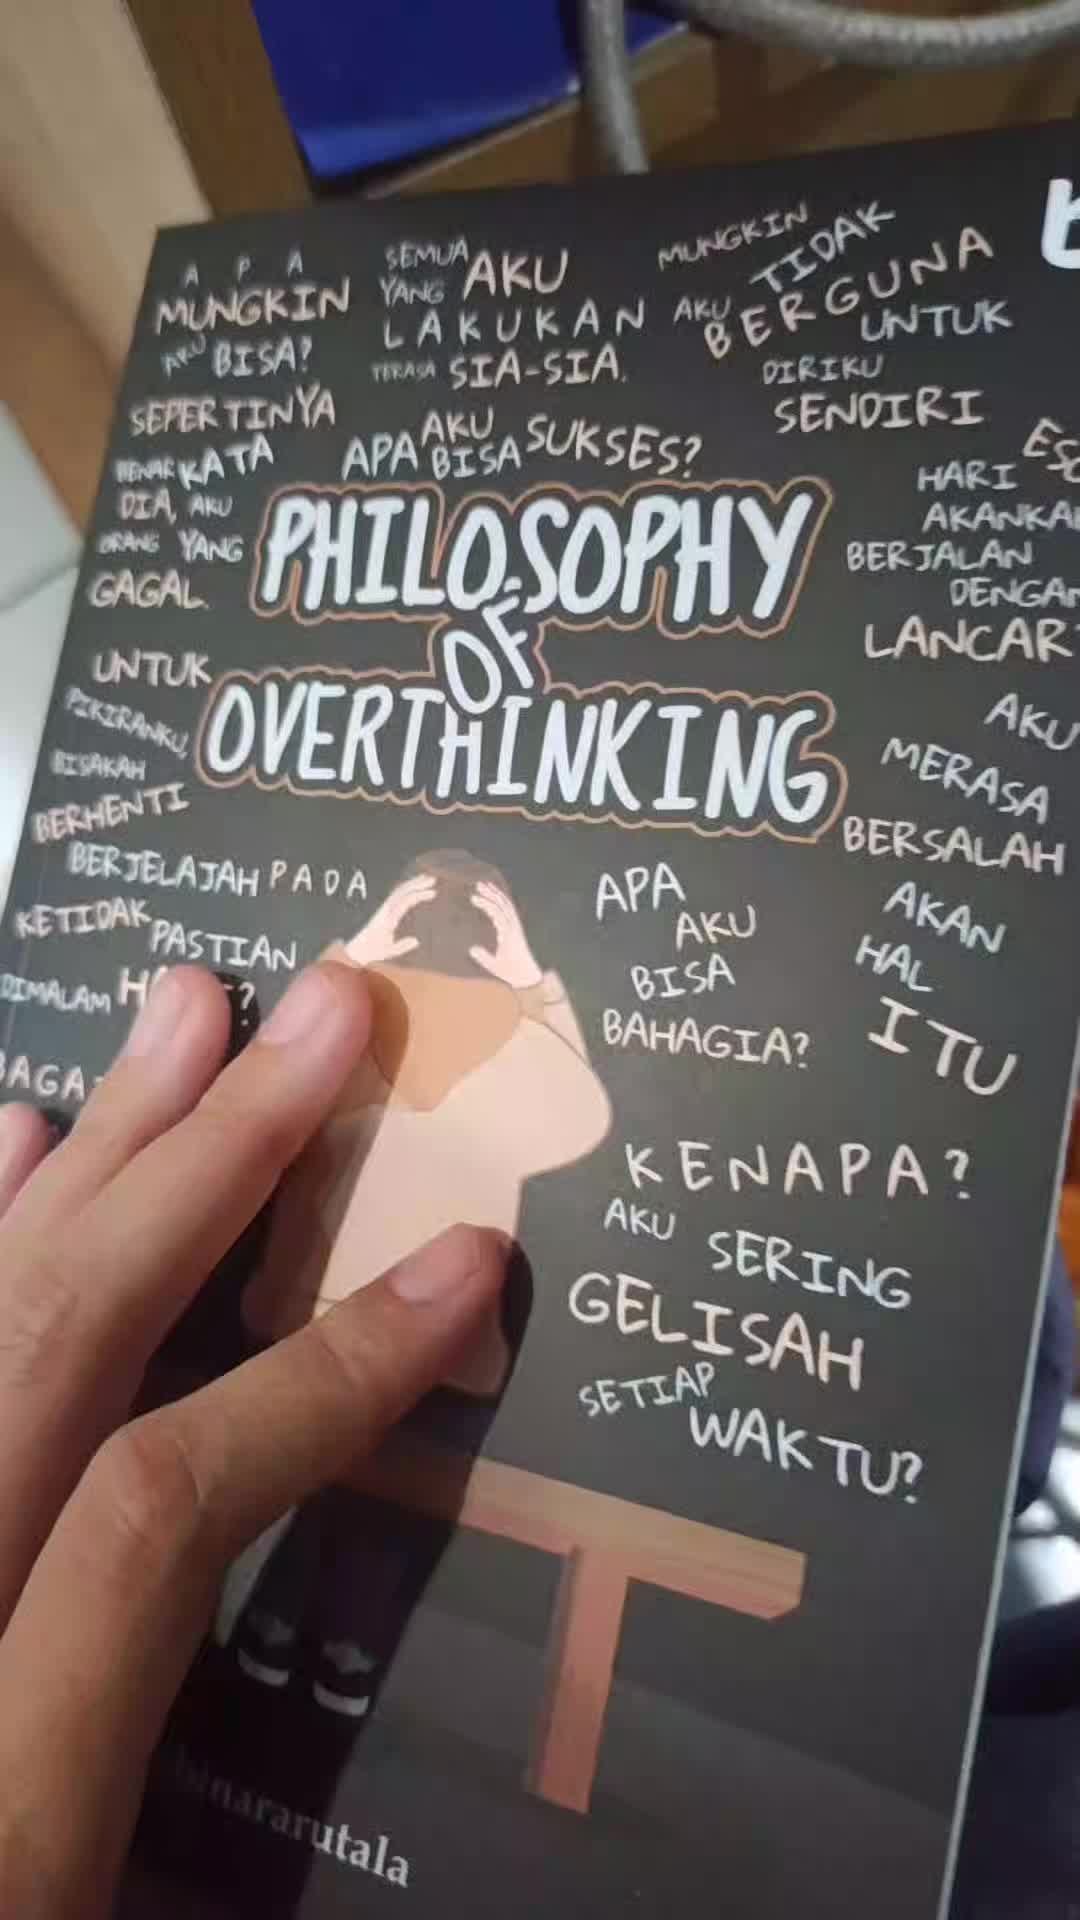 APA
MUNGKIN
AKU BISA?
SEMUA
YANG AKU
LAKUKAN
TERASA SIA-SIA.
MUNGKIN
TIDAK
AKU BERGUNA
UNTUK
DIRIKU
SENDIRI
SEPERTINYA
BENAR KATA
DIA, AKU
ORANG YANG
GAGAL.
APA AKU BISA SUKSES?
HARI
BERJALAN
LANCAR
PHILOSOPHY
OF
OVERTHINKING
UNTUK
PIKIRANKU,
BISAKAH
BERHENTI
BERJELAJAH PADA
KETIDAK
PASTIAN
DIMALAM
AKU
MERASA
BERSALAH
AKAN
HAL
ITU
APA
AKU
BISA
BAHAGIA?
KENAPA?
AKU SERING
GELISAH
SETIAP
WAKTU?